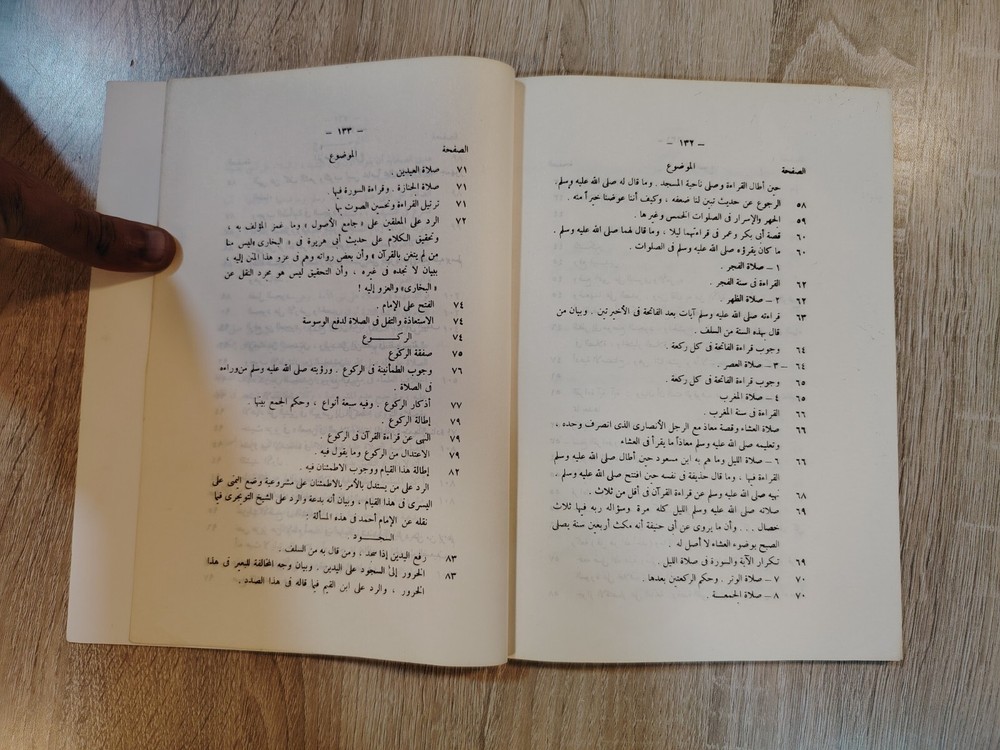 — ١٣٢ —
الصفحة الموضوع
حين أطال القراءة وصلى ناحية المسجد . وما قال له صلى الله عليه وسلم.
٥٨ الرجوع عن حديث تبين لنا ضعفه ، وكيف أننا عوضنا خيراً منه .
٥٩ الجهر والإسرار فى الصلوات الخمس وغيرها .
٦٠ قصة أبى بكر وعمر فى قراءتهما ليلا ، وما قال لهما صلى الله عليه وسلم .
٦٠ ما كان يقرؤه صلى الله عليه وسلم فى الصلوات .
١ – صلاة الفجر .
٦٢ القراءة فى سنة الفجر .
٦٢ ٢ – صلاة الظهر .
٦٣ قراءته صلى الله عليه وسلم آيات بعد الفاتحة فى الأخيرتين . وبيان من
قال بهذه السنة من السلف .
٦٤ وجوب قراءة الفاتحة فى كل ركعة .
٦٤ – ٣ – صلاة العصر .
٦٥ وجوب قراءة الفاتحة فى كل ركعة .
٦٥ ٤ – صلاة المغرب
٦٦ القراءة فى سنة المغرب .
٦٦ صلاة العشاء وقصة معاذ مع الرجل الأنصارى الذى انصرف وحده ،
وتعليمه صلى الله عليه وسلم معاذاً ما يقرأ فى العشاء
٦٦ ٦ – صلاة الليل وما هم به ابن مسعود حين أطال صلى الله عليه وسلم
القراءة فيها ، وما قال حذيفة فى نفسه حين افتتح صلى الله عليه وسلم .
٦٨ نهيه صلى الله عليه وسلم عن قراءة القرآن فى أقل من ثلاث .
٦٩ صلاته صلى الله عليه وسلم الليل كله مرة وسؤاله ربه فيها ثلاث
خصال . . . وأن ما يروى عن أبى حنيفة أنه مكث أربعين سنة يصلى
الصبح بوضوء العشاء لا أصل له .
٦٩ تكرار الآية والسورة فى صلاة الليل .
٧٠ ٧ – صلاة الوتر . وحكم الركعتين بعدها .
٧٠ ٨ – صلاة الجمعة .
— ١٣٣ —
الصفحة الموضوع
٧١ صلاة العيدين .
٧١ صلاة الجنازة . وقراءة السورة فيها .
٧١ ترتيل القراءة وتحسين الصوت بها
٧٢ الرد على المعلقين على « جامع الأصول » وما غمز المؤلف به ،
وتحقيق الكلام على حديث أبى هريرة فى « البخارى «ليس منا
من لم يتغن بالقرآن » وأن بعض رواته وهم فى عزو هذا المتن إليه ،
ببيان لا تجده فى غيره ، وأن التحقيق ليس هو مجرد النقل عن
« البخارى» والعزو إليه !
٧٤ الفتح على الإمام .
٧٤ الاستعاذة والتفل فى الصلاة لدفع الوسوسة
٧٤ الركـــوع
٧٥ صفقة الركوع
٧٦ وجوب الطمأنينة فى الركوع . ورؤيته صلى الله عليه وسلم من وراءه
فى الصلاة .
٧٧ أذكار الركوع . وفيه سبعة أنواع ، وحكم الجمع بينها .
٧٩ إطالة الركوع .
٧٩ النهى عن قراءة القرآن فى الركوع .
٧٩ الاعتدال من الركوع وما يقول فيه .
٨٢ إطالة هذا القيام ووجوب الاطمئنان فيه .
الرد على من يستدل بالأمر بالاطمئنان على مشروعية وضع اليمنى على
اليسرى فى هذا القيام ، وبيان أنه بدعة والرد على الشيخ التويجرى فيما
نقله عن الإمام أحمد فى هذه المسألة :
السجـــود .
٨٣ رفع اليدين إذا سجد ، ومن قال به من السلف .
٨٣ الخرور إلى السجود على اليدين . وبيان وجه المخالفة للبعير فى هذا
الخرور ، والرد على ابن القيم فيما قاله فى هذا الصدد .